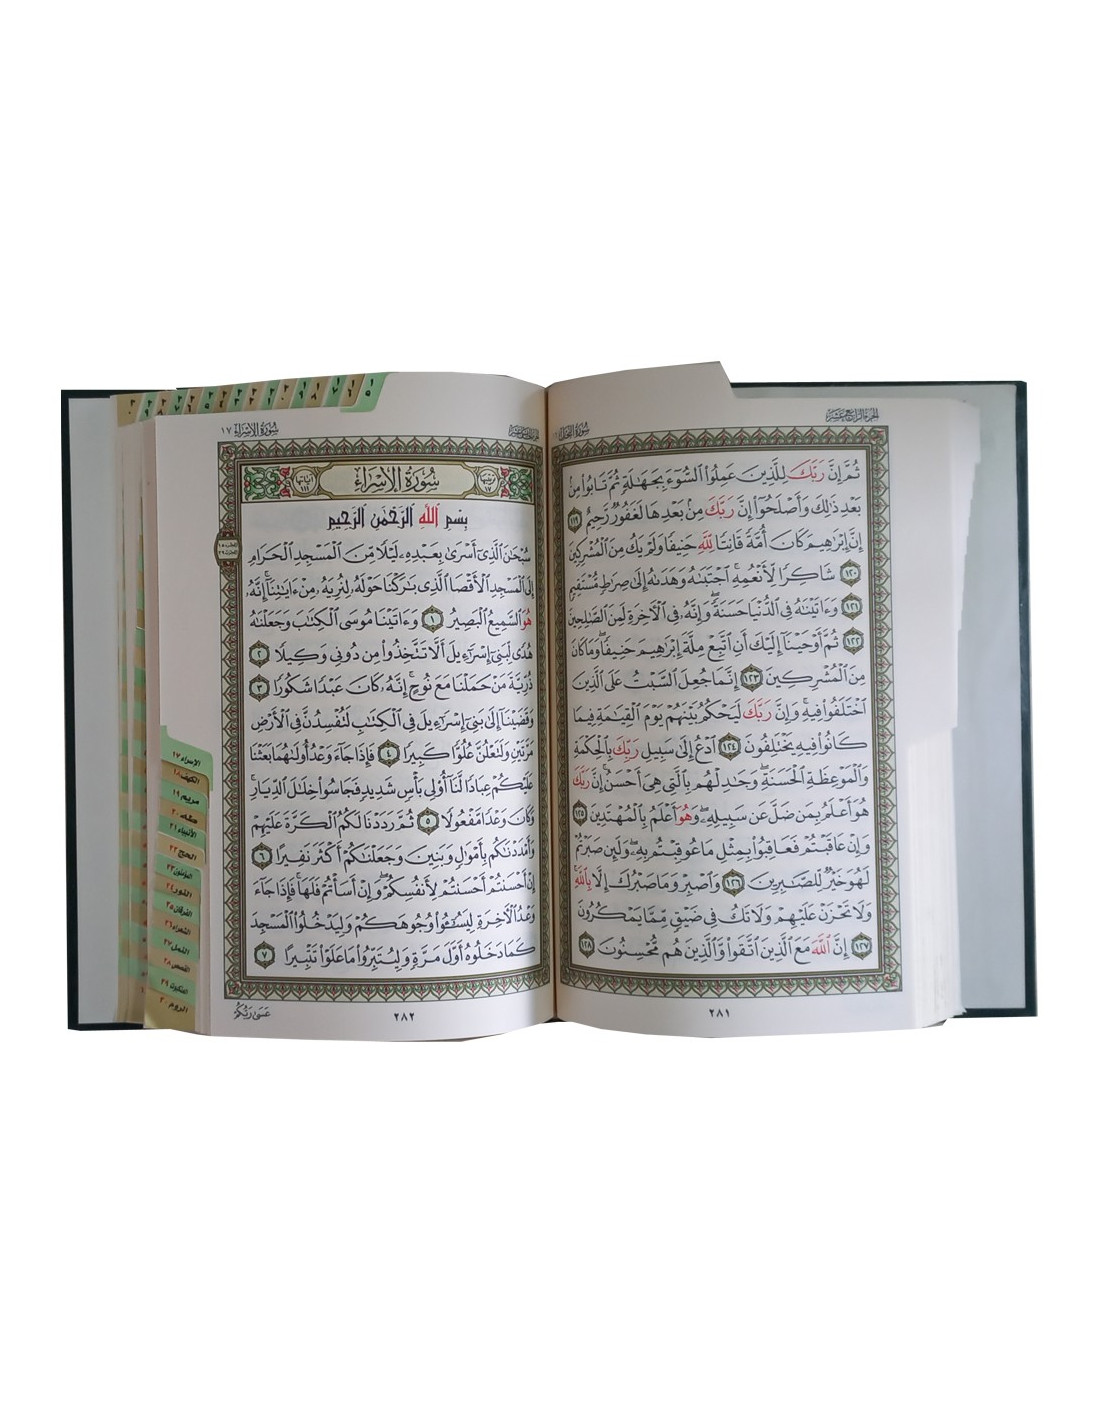 الجزء الرابع عشر
سورة النحل
ثُمَّ إِنَّ رَبَّكَ لِلَّذِينَ عَمِلُوا۟ ٱلسُّوٓءَ بِجَهَـٰلَةٍ ثُمَّ تَابُوا۟ مِنۢ
بَعْدِ ذَٰلِكَ وَأَصْلَحُوٓا۟ إِنَّ رَبَّكَ مِنۢ بَعْدِهَا لَغَفُورٌ رَّحِيمٌ ١١٩
إِنَّ إِبْرَٰهِيمَ كَانَ أُمَّةً قَانِتًا لِّلَّهِ حَنِيفًا وَلَمْ يَكُ مِنَ ٱلْمُشْرِكِينَ
١٢٠ شَاكِرًا لِّأَنْعُمِهِ ۚ ٱجْتَبَىٰهُ وَهَدَىٰهُ إِلَىٰ صِرَٰطٍ مُّسْتَقِيمٍ
١٢١ وَءَاتَيْنَـٰهُ فِى ٱلدُّنْيَا حَسَنَةً ۖ وَإِنَّهُۥ فِى ٱلْـَٔاخِرَةِ لَمِنَ ٱلصَّـٰلِحِينَ
١٢٢ ثُمَّ أَوْحَيْنَآ إِلَيْكَ أَنِ ٱتَّبِعْ مِلَّةَ إِبْرَٰهِيمَ حَنِيفًا ۖ وَمَا كَانَ
مِنَ ٱلْمُشْرِكِينَ ١٢٣ إِنَّمَا جُعِلَ ٱلسَّبْتُ عَلَى ٱلَّذِينَ
ٱخْتَلَفُوا۟ فِيهِ ۚ وَإِنَّ رَبَّكَ لَيَحْكُمُ بَيْنَهُمْ يَوْمَ ٱلْقِيَـٰمَةِ فِيمَا
كَانُوا۟ فِيهِ يَخْتَلِفُونَ ١٢٤ ٱدْعُ إِلَىٰ سَبِيلِ رَبِّكَ بِٱلْحِكْمَةِ
وَٱلْمَوْعِظَةِ ٱلْحَسَنَةِ ۖ وَجَـٰدِلْهُم بِٱلَّتِى هِىَ أَحْسَنُ ۚ إِنَّ رَبَّكَ
هُوَ أَعْلَمُ بِمَن ضَلَّ عَن سَبِيلِهِۦ ۖ وَهُوَ أَعْلَمُ بِٱلْمُهْتَدِينَ ١٢٥
وَإِنْ عَاقَبْتُمْ فَعَاقِبُوا۟ بِمِثْلِ مَا عُوقِبْتُم بِهِۦ ۖ وَلَئِن صَبَرْتُمْ
لَهُوَ خَيْرٌ لِّلصَّـٰبِرِينَ ١٢٦ وَٱصْبِرْ وَمَا صَبْرُكَ إِلَّا بِٱللَّهِ ۚ
وَلَا تَحْزَنْ عَلَيْهِمْ وَلَا تَكُ فِى ضَيْقٍ مِّمَّا يَمْكُرُونَ
١٢٧ إِنَّ ٱللَّهَ مَعَ ٱلَّذِينَ ٱتَّقَوا۟ وَّٱلَّذِينَ هُم مُّحْسِنُونَ ١٢٨
٢٨١
سورة الإسراء ١٧
سُورَةُ الإِسْرَاءِ
بِسْمِ ٱللَّهِ ٱلرَّحْمَـٰنِ ٱلرَّحِيمِ
سُبْحَـٰنَ ٱلَّذِىٓ أَسْرَىٰ بِعَبْدِهِۦ لَيْلًا مِّنَ ٱلْمَسْجِدِ ٱلْحَرَامِ
إِلَى ٱلْمَسْجِدِ ٱلْأَقْصَا ٱلَّذِى بَـٰرَكْنَا حَوْلَهُۥ لِنُرِيَهُۥ مِنْ ءَايَـٰتِنَآ ۚ إِنَّهُۥ
هُوَ ٱلسَّمِيعُ ٱلْبَصِيرُ ١ وَءَاتَيْنَا مُوسَى ٱلْكِتَـٰبَ وَجَعَلْنَـٰهُ
هُدًى لِّبَنِىٓ إِسْرَٰٓءِيلَ أَلَّا تَتَّخِذُوا۟ مِن دُونِى وَكِيلًا ٢
ذُرِّيَّةَ مَنْ حَمَلْنَا مَعَ نُوحٍ ۚ إِنَّهُۥ كَانَ عَبْدًا شَكُورًا ٣
وَقَضَيْنَآ إِلَىٰ بَنِىٓ إِسْرَٰٓءِيلَ فِى ٱلْكِتَـٰبِ لَتُفْسِدُنَّ فِى ٱلْأَرْضِ
مَرَّتَيْنِ وَلَتَعْلُنَّ عُلُوًّا كَبِيرًا ٤ فَإِذَا جَآءَ وَعْدُ أُولَىٰهُمَا بَعَثْنَا
عَلَيْكُمْ عِبَادًا لَّنَآ أُو۟لِى بَأْسٍ شَدِيدٍ فَجَاسُوا۟ خِلَـٰلَ ٱلدِّيَارِ ۚ
وَكَانَ وَعْدًا مَّفْعُولًا ٥ ثُمَّ رَدَدْنَا لَكُمُ ٱلْكَرَّةَ عَلَيْهِمْ
وَأَمْدَدْنَـٰكُم بِأَمْوَٰلٍ وَبَنِينَ وَجَعَلْنَـٰكُمْ أَكْثَرَ نَفِيرًا ٦
إِنْ أَحْسَنتُمْ أَحْسَنتُمْ لِأَنفُسِكُمْ ۖ وَإِنْ أَسَأْتُمْ فَلَهَا ۚ فَإِذَا جَآءَ
وَعْدُ ٱلْـَٔاخِرَةِ لِيَسُـۥٓـُٔوا۟ وُجُوهَكُمْ وَلِيَدْخُلُوا۟ ٱلْمَسْجِدَ
كَمَا دَخَلُوهُ أَوَّلَ مَرَّةٍ وَلِيُتَبِّرُوا۟ مَا عَلَوْا۟ تَتْبِيرًا ٧
عَسَىٰ رَبُّكُمْ
٢٨٢
الإسراء ١٧
الكهف ١٨
مريم ١٩
طه ٢٠
الأنبياء ٢١
الحج ٢٢
المؤمنون ٢٣
النور ٢٤
الفرقان ٢٥
الشعراء ٢٦
النمل ٢٧
القصص ٢٨
العنكبوت ٢٩
الروم ٣٠